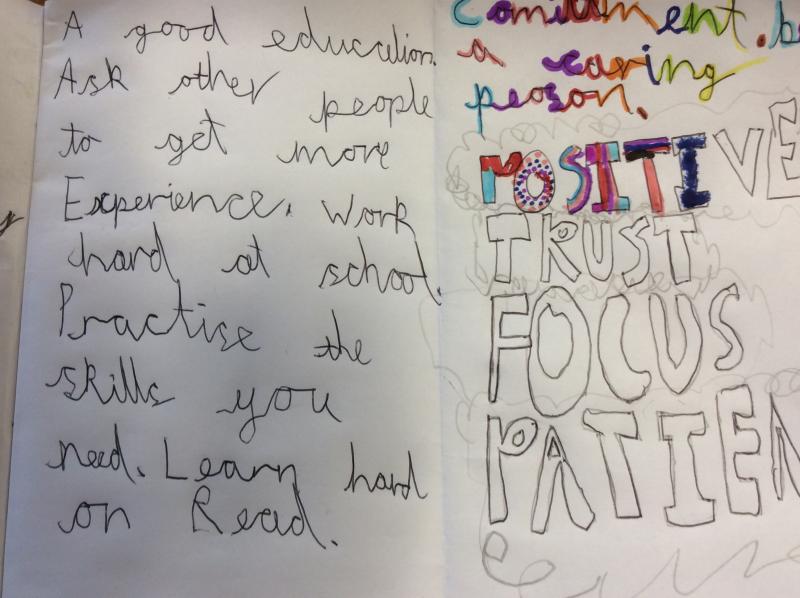 A good education.
Ask other people
to get more
Experience. Work
hard at school.
Practise the
skills you
need. Learn hard
on Read.
Comitment. be
a caring
peoson.
POSITIVE
TRUST
FOCUS
PATIEN